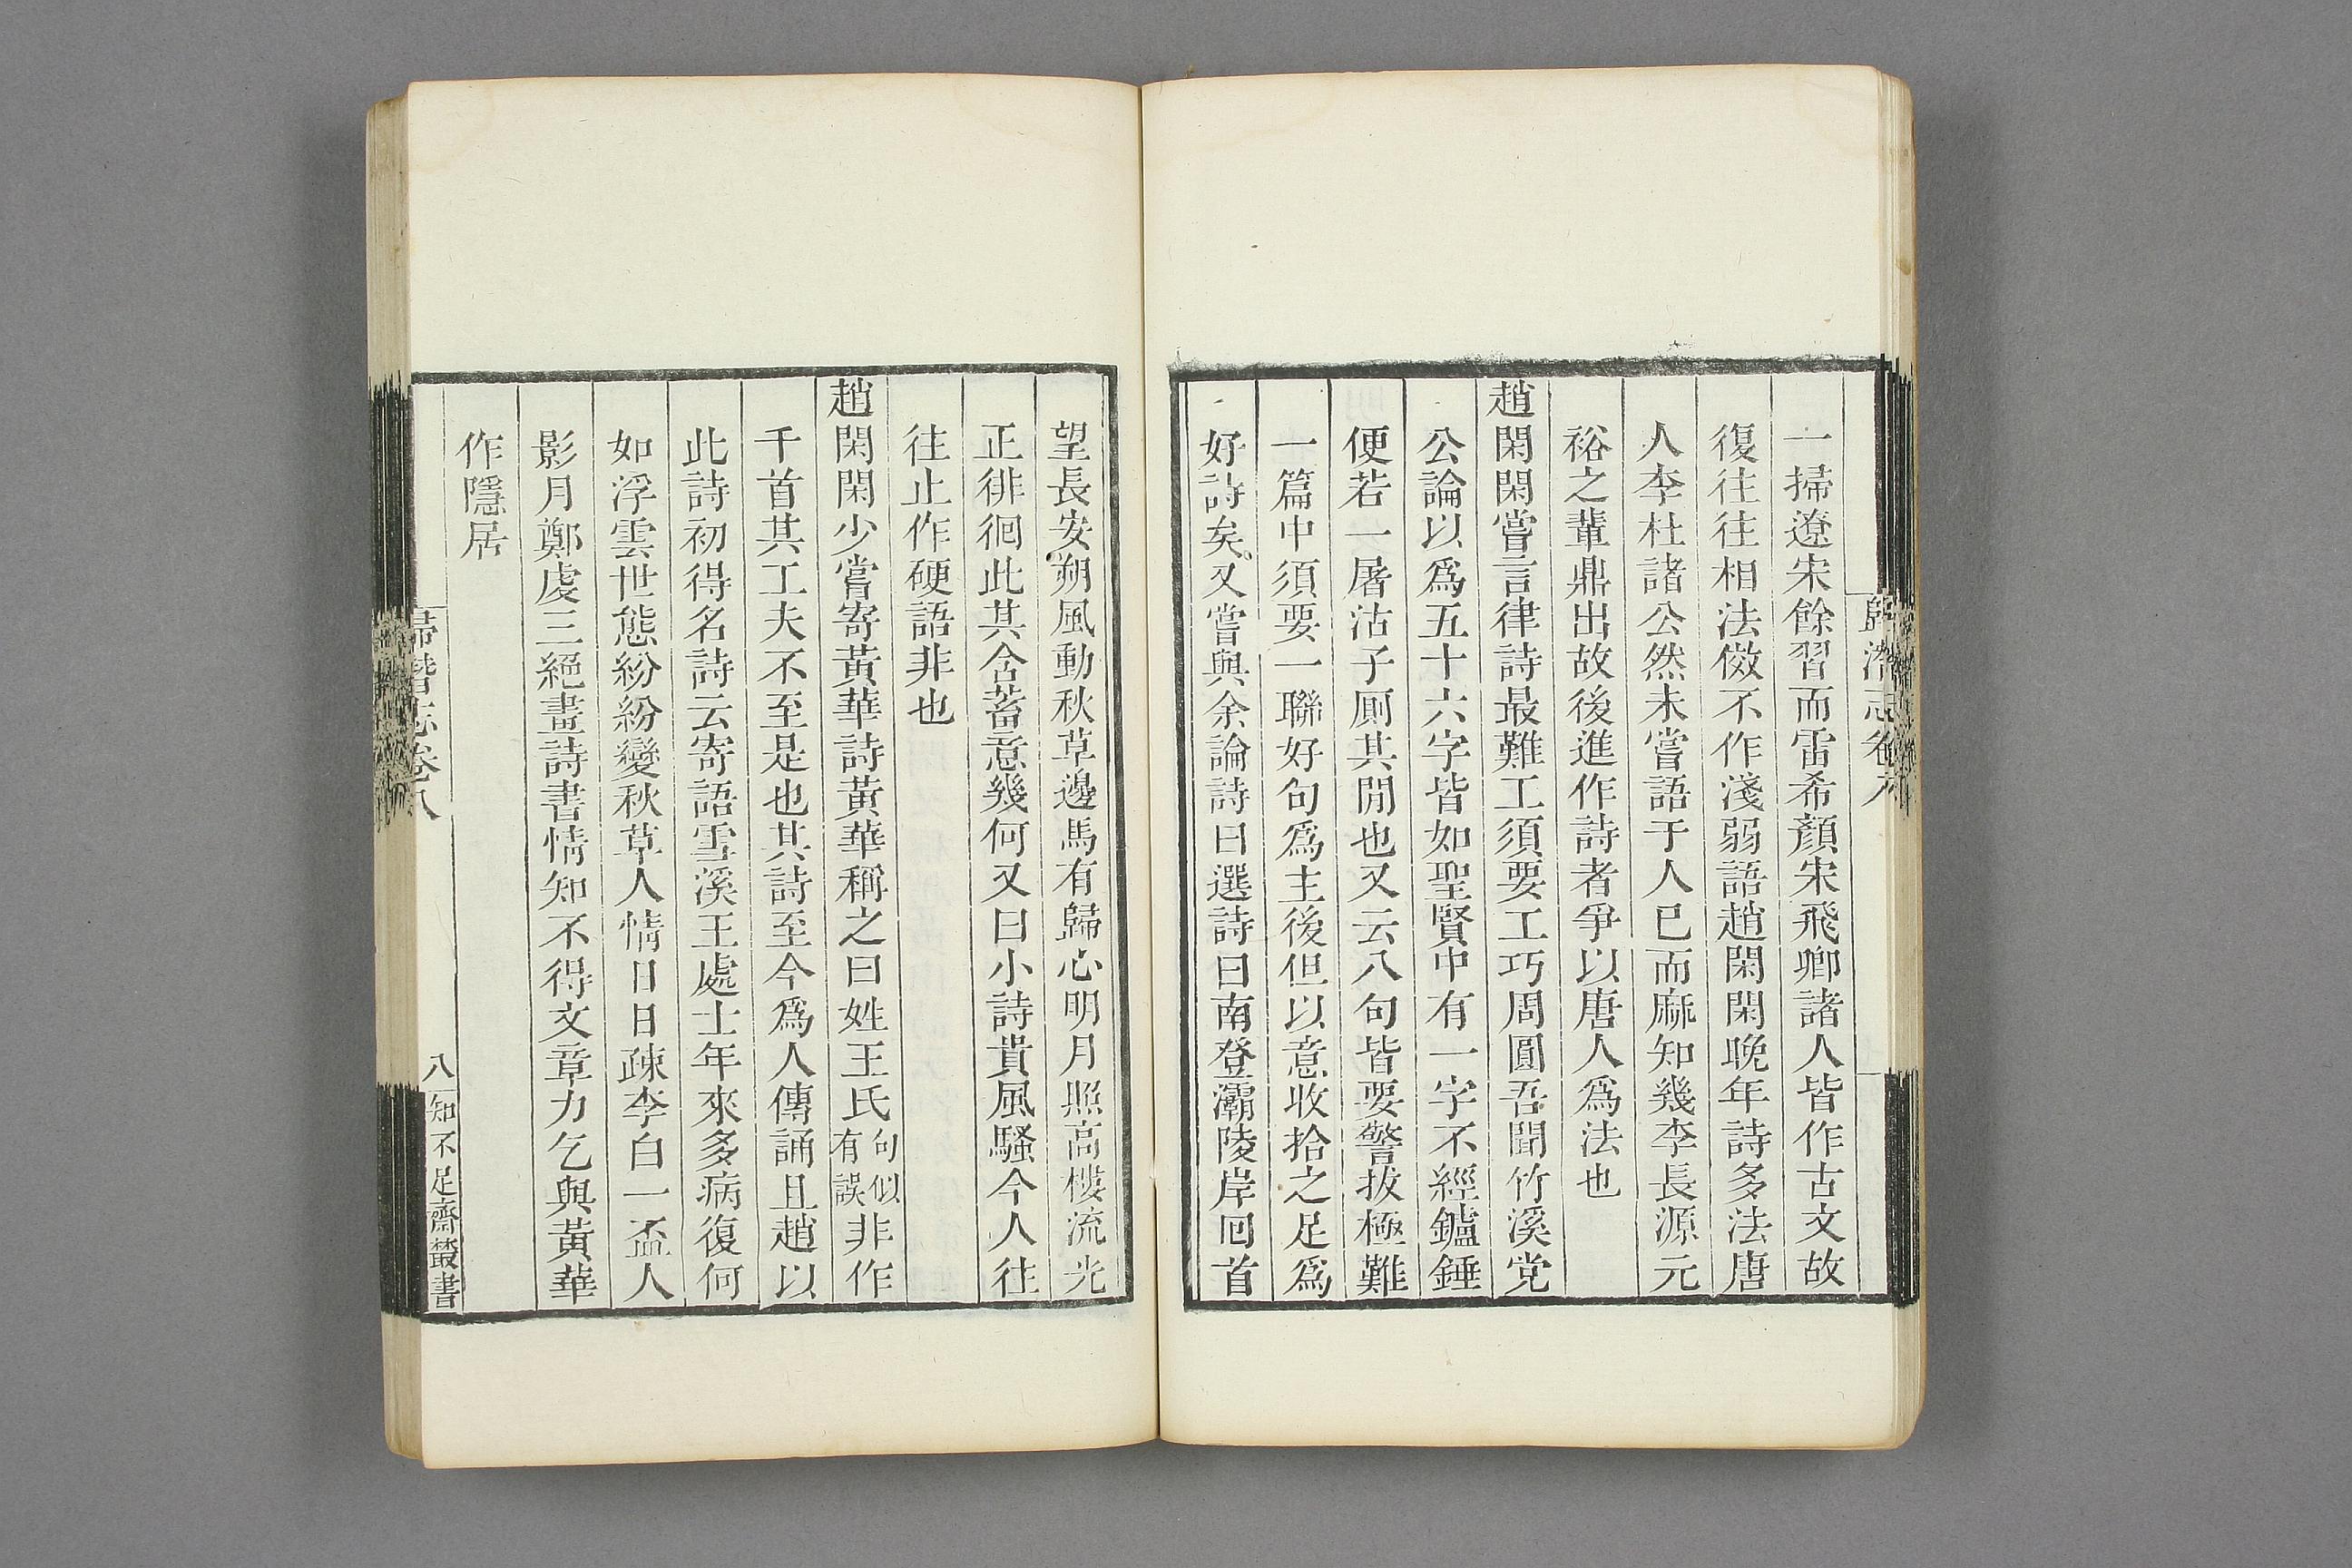 一掃遼宋餘習而雷希顏宋飛卿諸人皆作古文故
復往往相法傚不作淺弱語趙閑閑晚年詩多法唐
人李杜諸公然未嘗語于人已而麻知幾李長源元
裕之輩鼎出故後進作詩者爭以唐人爲法也
趙閑閑嘗言律詩最難工須要工巧周圓吾聞竹溪党
公論以爲五十六字皆如聖賢中有一字不經鑪錘
便若一屠沽子厠其閒也又云八句皆要警拔極難
一篇中須要一聯好句爲主後但以意收拾之足爲
好詩矣又嘗與余論詩曰選詩曰南登灞陵岸囘首
望長安朔風動秋草邊馬有歸心明月照高樓流光
正徘徊此其含蓄意幾何又曰小詩貴風騷今人往
往止作硬語非也
趙閑閑少嘗寄黃華詩黃華稱之曰姓王氏句似有誤非作
千首其工夫不至是也其詩至今爲人傳誦且趙以
此詩初得名詩云寄語雪溪王處士年來多病復何
如浮雲世態紛紛變秋草人情日日疎李白一盃人
影月鄭虔三絕畫詩書情知不得文章力乞與黃華
作隱居
歸潛志卷八
八
知不足齋叢書